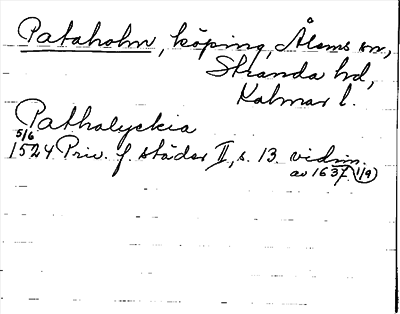 Pataholm, köping, Ålems sn,
Stranda hd,
Kalmar l.
Pathalyckia
5/6
1524 Priv. f. städer II, s. 13. vidim.
av 1637. 1/9)